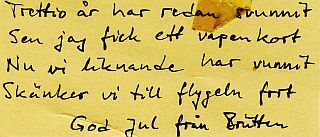 Trettio år har redan svunnit
Sen jag fick ett vapenkort
Nu vi liknande har vunnit
Skänker vi till flygeln fort
God Jul från Britten